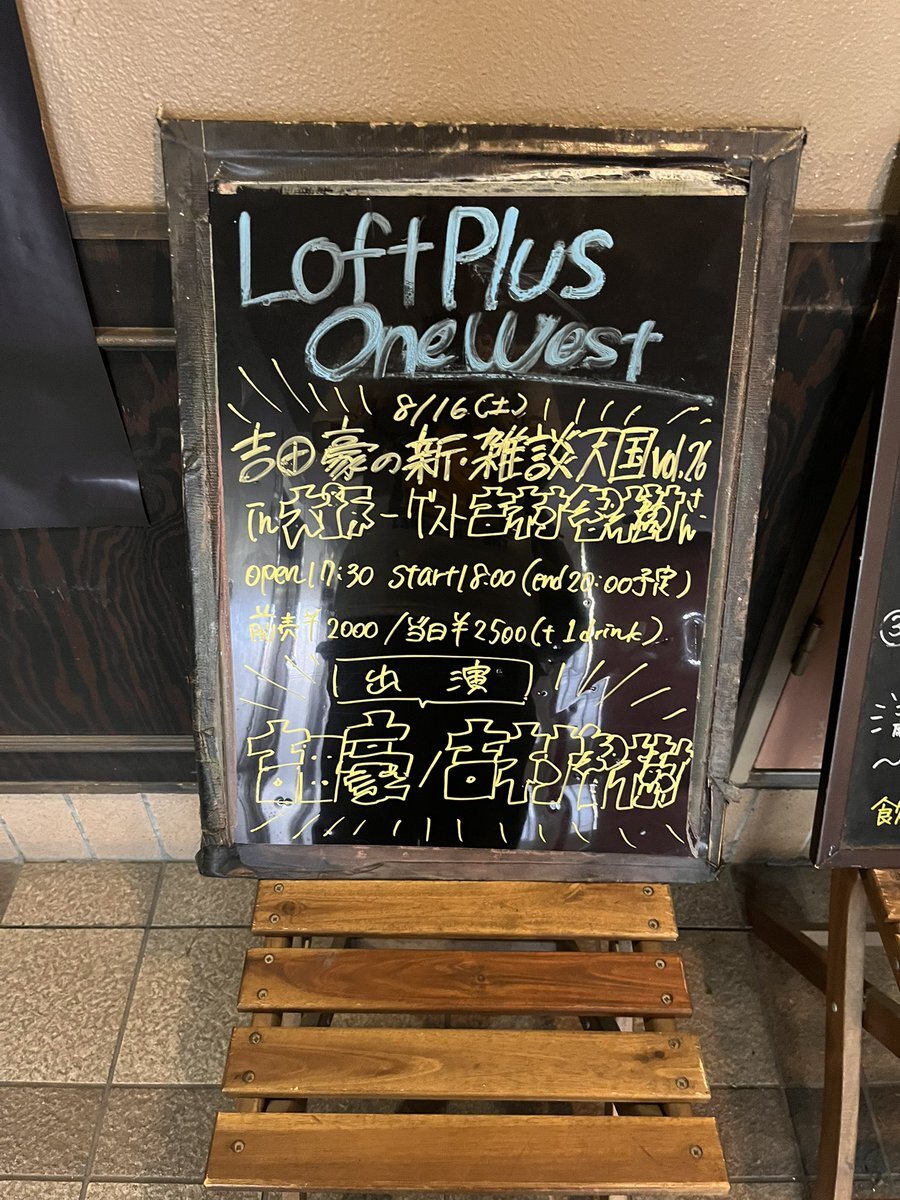 Loft Plus
One West
8/16(土)
吉田豪の新・雑談天国vol.26
in大阪-ゲスト吉村智樹さん-
open17:30 start18:00(end20:00予定)
前売¥2000/当日¥2500(+1drink)
出演
吉田豪/吉村智樹